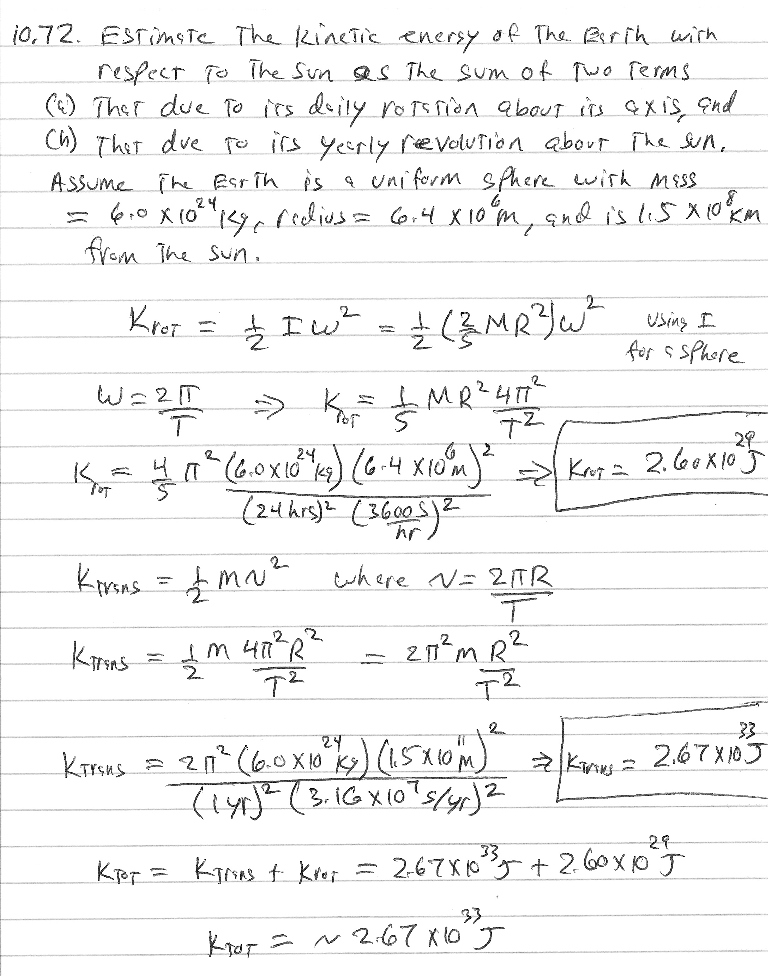 10.72. Estimate the kinetic energy of the Earth with
respect to the sun as the sum of two terms
(a) That due to its daily rotation about its axis, and
(b) That due to its yearly revolution about the sun.
Assume the Earth is a uniform sphere with mass
= 6.0 x 10²⁴ kg, radius = 6.4 x 10⁶ m, and is 1.5 x 10⁸ km
from the sun.
K_rot = 1/2 I ω² = 1/2 (2/5 MR²) ω² using I
for a sphere
ω = 2π/T ⇒ K_rot = 1/5 MR² 4π²/T²
K_rot = 4/5 π² (6.0x10²⁴ kg) (6.4 x10⁶ m)² / (24 hrs)² (3600 s/hr)² ⇒ K_rot = 2.60 x10²⁹ J
K_trans = 1/2 m v² where v = 2πR/T
K_trans = 1/2 m 4π²R²/T² = 2π² m R²/T²
K_trans = 2π² (6.0 x10²⁴ kg) (1.5 x10¹¹ m)² / (1yr)² (3.16 x10⁷ s/yr)² ⇒ K_trans = 2.67 x10³³ J
K_TOT = K_trans + K_rot = 2.67 x10³³ J + 2.60 x 10²⁹ J
K_TOT = ~ 2.67 x10³³ J